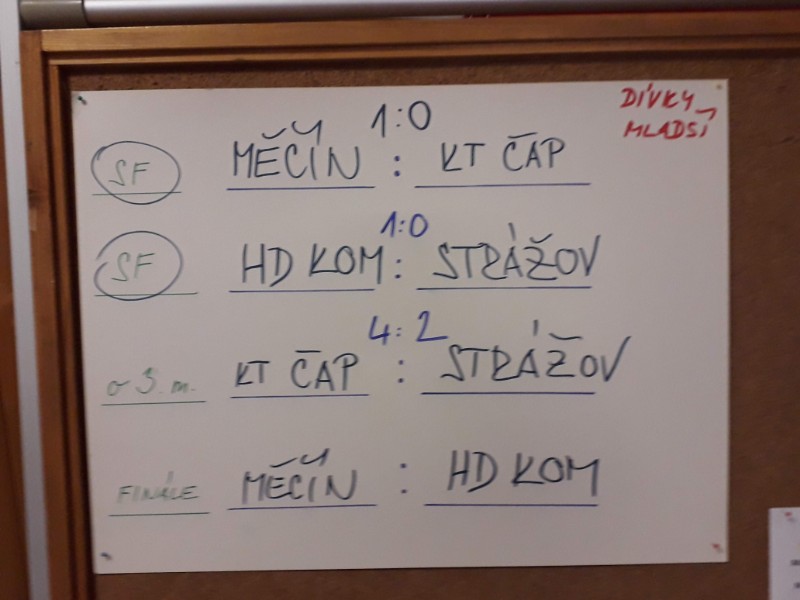 DÍVKY
MLADŠÍ
1:0
SF MĚČÍN : KT ČAP
1:0
SF HD KOM : STRÁŽOV
4:2
o 3. m. KT ČAP : STRÁŽOV
FINÁLE MĚČÍN : HD KOM